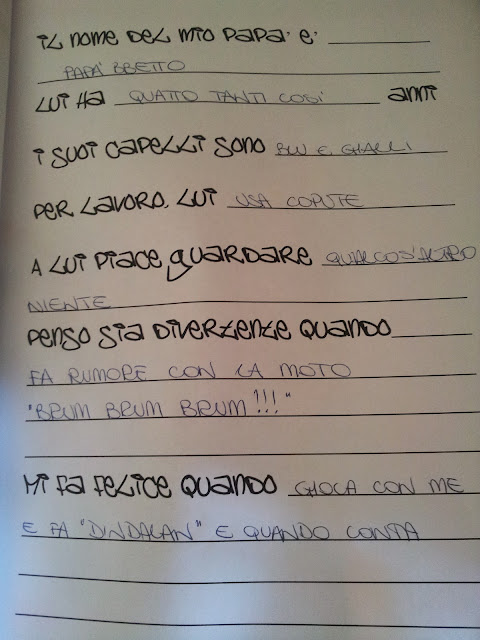 IL NOME DEL MIO PAPA' E'
PAPA' BBETTO
LUI HA QUATTO TANTI COSI' ANNI
I SUOI CAPELLI SONO BLU E GIALLI
PER LAVORO, LUI USA COPUTE
A LUI PIACE GUARDARE QUALCOS'ALTRO
NIENTE
PENSO SIA DIVERTENTE QUANDO
FA RUMORE CON LA MOTO
"BRUM BRUM BRUM!!!"
MI FA FELICE QUANDO GIOCA CON ME
E FA "DINDALAN" E QUANDO CONTA